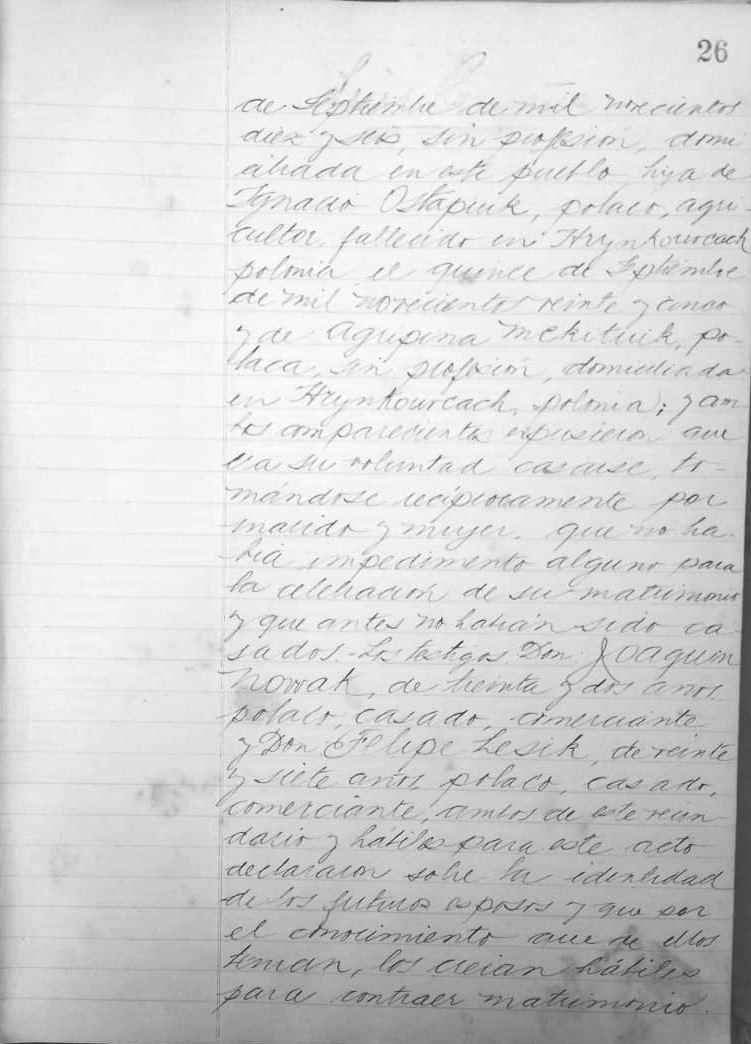 26
de Septiembre de mil novecientos
diez y seis, sin profesión, domi
ciliada en este pueblo hija de
Ygnacio Ostapiuk, polaco, agri-
cultor, fallecido en Hrynkowcach
polonia el quince de Septiembre
de mil novecientos veinte y cinco
y de Agripina Mekituik, po-
laca, sin profesión, domiciliada
en Hrynkowcach, polonia; y am
bos comparecientes expusieron que
era su voluntad casarse, to-
mándose recíprocamente por
marido y mujer. que no ha-
bía impedimento alguno para
la celebración de su matrimonio
y que antes no habían sido ca
sados. Los testigos Don: Joaquin
Nowak, de treinta y dos años
polaco, casado, comerciante
y Don Felipe Lesik, de veinte
y siete años, polaco, casado,
comerciante, ambos de este vecin
dario y hábiles para este acto
declararon sobre la identidad
de los futuros esposos y que por
el conocimiento que de ellos
tenian, los creian hábiles
para contraer matrimonio.